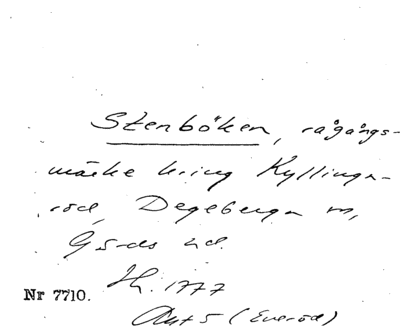 Stenböken, rågångs-
märke kring Kyllinga-
röd, Degeberga sn,
Gärds hd.
Hl. 1777
Nr 7710.
Akt 5 (Everöd)